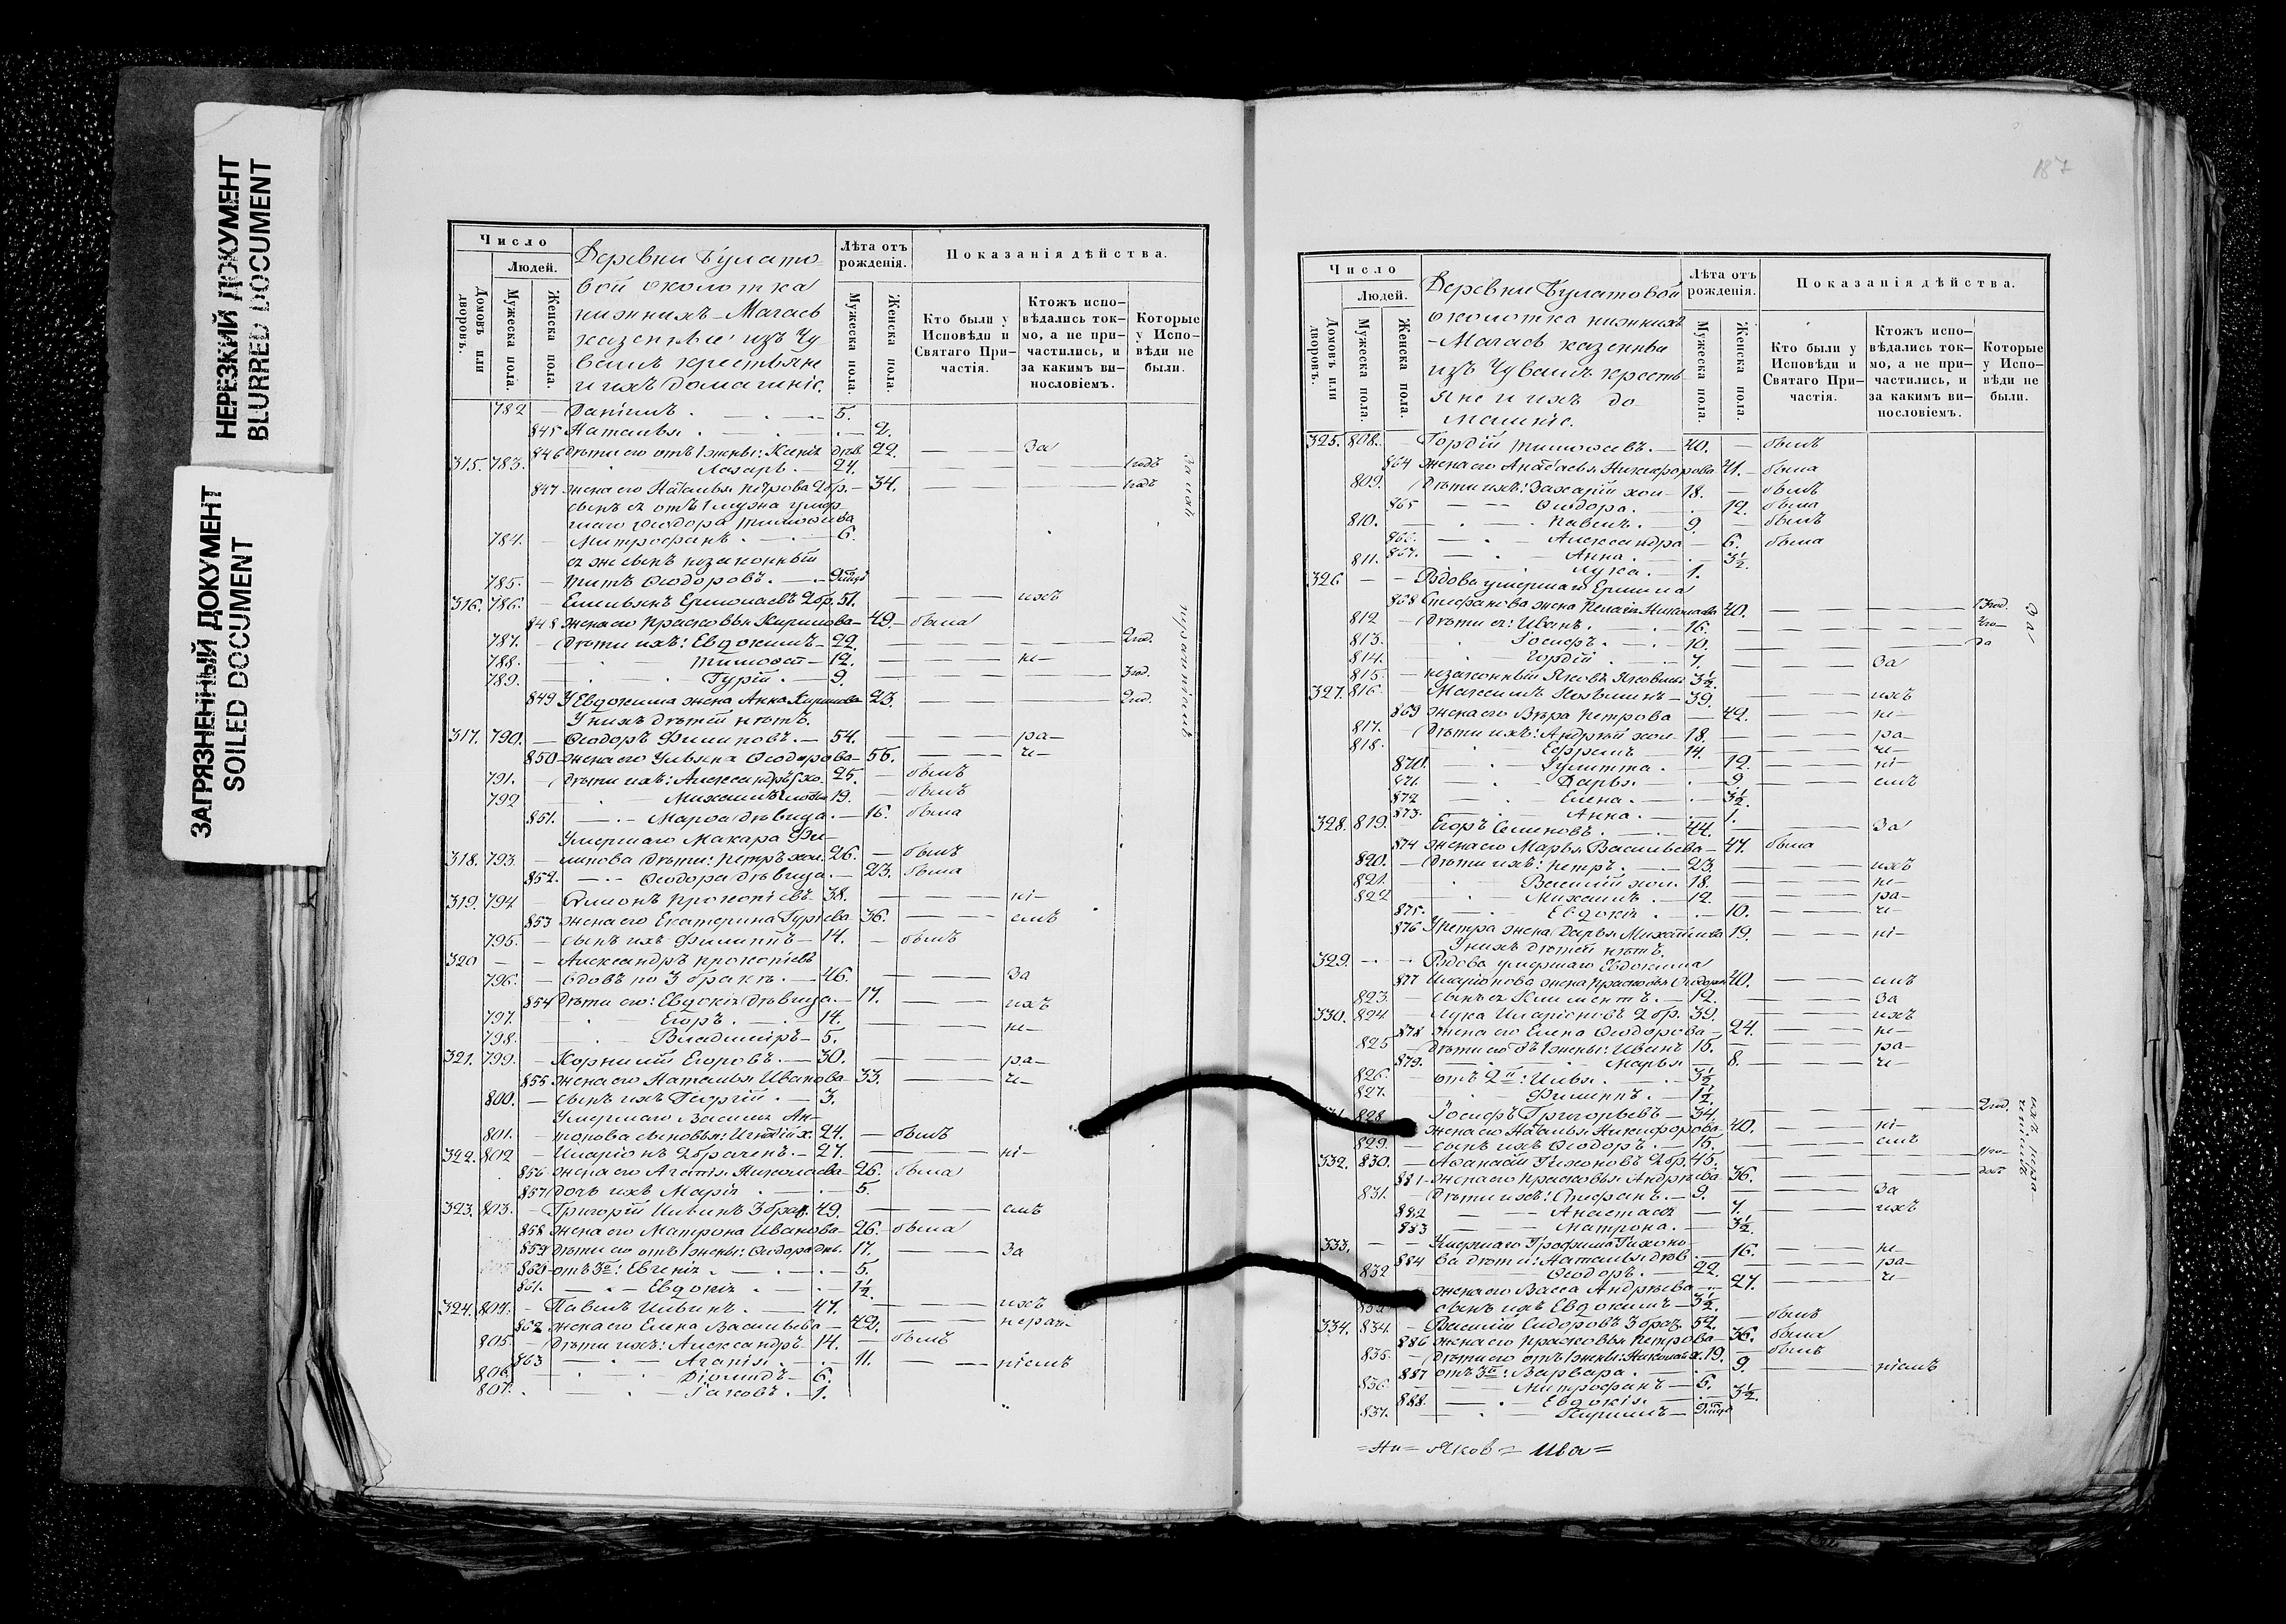 НЕРЕЗКИЙ ДОКУМЕНТ
BLURRED DOCUMENT
ЗАГРЯЗНЕННЫЙ ДОКУМЕНТ
SOILED DOCUMENT
Число
Людей.
Домовъ или дворовъ.
Мужеска пола.
Женска пола.
Деревни Булато-
вой околотка
нижнихъ-Магась
казенные изъ Чу
вашъ крестьяне
и ихъ домашніе.
Лѣта отъ рожденія.
Мужеска пола.
Женска пола.
Показанія дѣйства.
Кто были у Исповѣди и Святаго При-частія.
Ктожъ испо-вѣдались ток-мо, а не при-частились, и за какимъ ви-нословіемъ.
Которые у Испо-вѣди не были.
782 — Даніилъ . — . — 5.
845 Наталья . — . — 2.
846 Дѣти его отъ 1 жены: Ксенія дѣв. 22. — — За
315. 783. Лазарь . — 24. — — — 1 годъ
847 жена его Наталья Петрова 2 бр. — 34. — — — 1 годъ
сынъ ея отъ 1 мужа умер
шаго Ѳеодора Тимоѳѣева
784. — Митрофанъ . — . — 6.
ея же сынъ незаконный
785. — Титъ Ѳеодоровъ . —
316. 786. — Емельянъ Ермолаевъ 2 бр. 51. — — ихъ
848 жена его Прасковья Кирилова — 49. — была
787. — Дѣти ихъ: Евдокимъ — 22. — — — 2 год.
788. — Тимоѳей — 12. — — не—
789. — Гурій . — 9. — — — 3 год.
849 У Евдокима жена Анна Кирилова 23. — — — 2 год.
У нихъ дѣтей нѣтъ.
317. 790. — Ѳеодоръ Филиповъ . — 54. — — ра—
850 жена его Ульяна Ѳеодорова — 55. — — че—
791. — Дѣти ихъ: Александръ хо. 25. — былъ
792 — Михаилъ 19. — былъ
851. — . — Марѳа дѣвица . — 16. была
Умершаго Макара Фи-
318. 793. — липова дѣти: Петръ хол. 26. — былъ
852. — . — Ѳеодора дѣвица . — 23. была
319. 794 — Прокопіевъ — 38. — — ні—
853 жена его Екатерина Гуріева 36. — — емъ
795. — сынъ ихъ Филиппъ — 14. — былъ
320 — — Александръ Прокопіевъ
796. — вдовъ по 3 бракѣ . — 46. — — За
854 Дѣти его: Евдокія дѣвица . — 17. — — ихъ
797. — Егоръ . — . — 14.
798. — Владиміръ — 5. — — не—
321. 799. — Корнилій Егоровъ . — 30. — — ра—
855 жена его Наталья Иванова — 33. — — че—
800. — сынъ ихъ Георгій . — 3.
Умершаго Василія Ан-
801. — тонова сыновья: Игнатій х. 24. — былъ
322. 802 — Иларіонъ 2 браченъ . — 27. — — ні—
856 жена его Агапія Николаева 26. была
857 дочь ихъ Марія . — . — 5.
323. 803. — Григорій Ильинъ 3 брач. 49. — — емъ
858 жена его Матрона Иванова — 26. была
859 дѣти его отъ 1 жены: Ѳеодора дѣв. 17. — — За
860 отъ 3й: Евгенія . — . — 5.
861. — . — Евдокія . — . — 1½
324. 804. — Павелъ Ильинъ . — 47. — — ихъ
862 жена его Елена Васильева — 42. — — нерач—
805. — Дѣти ихъ: Александръ — 14. — былъ
863 — . — Агапія . — . — 11. — — ніемъ
806. — . — Діомидъ — 6.
807. — . — Іаковъ . — 1.
За ихъ
нераченіемъ
187
Число
Людей.
Домовъ или дворовъ.
Мужеска пола.
Женска пола.
Деревни Булатовой
околотка нижнихъ
-Магась казенные
изъ Чувашъ кресть
яне и ихъ до-
машніе.
Лѣта отъ рожденія.
Мужеска пола.
Женска пола.
Показанія дѣйства.
Кто были у Исповѣди и Святаго При-частія.
Ктожъ испо-вѣдались ток-мо, а не при-частились, и за какимъ ви-нословіемъ.
Которые у Испо-вѣди не были.
325. 808. — Гордій Тимоѳеевъ . — 40. — былъ
864 жена его Никифорова 41. — была
809. Дѣти ихъ: Захарій хол — 18. — былъ
865 — — Ѳеодора . — . 12. была
810. — . — Павелъ . — 9 — былъ
866. — . — Александра — 6. была
867. — . — Анна . — . 3½.
811. — Лука . — 1.
326 — — Вдова умершаго Ермила
868 Стефанова жена Пелагія Николаева 40. — — — 1 год.
812 — Дѣти ея: Иванъ . — 16.
813. — Іосифъ . — . — 10.
814. — Гордій . — 7. — — За
815. — незаконный Яковъ Яковлевъ 3½.
327. 816 — Максимъ Козьминъ — 39. — — ихъ
869 жена его Вѣра Петрова — 42. — — не—
817. — Дѣти ихъ: Андрей хол — 18. — — ра—
818. — Ефремъ — 14. — — че—
870. — Іулитта . — 12. — — ні—
871. — Дарья . — . — 9. — — емъ
872 — . — Елена . — . — 3½.
873. — . — Анна . — . — 1.
328. 819. Егоръ Семеновъ . — 44. — — За
874 жена его Марья Васильева — 47. была
820. — Дѣти ихъ: Петръ . — 23. — — ихъ
821. — Василій хол. 18. — — не—
822 — Михаилъ . — 12. — — ра—
875. — . — Евдокія . — 10. — — че—
876 У Петра жена Дарья Михайлова 19. — — ні—
У нихъ дѣтей нѣтъ.
329. — — Вдова умершаго Евдокима
877 Иларіонова жена Прасковья 40. — — емъ
823. — сынъ ея Климентъ . — 12. — — За
330. 824 — Лука Иларіоновъ 2 бр. 39. — — ихъ
878 жена его Елена Ѳеодорова — 24. — — не—
825 — Дѣти его отъ 1 жены: Иванъ 15. — — ра—
879. — Марья — 8. — — че—
826. — отъ 2й: Илья . — . — 3½
827. — Филиппъ . — 1½.
828 Іосифъ Григорьевъ — 34. — — — 2 год.
жена его Наталья Никифорова 40. — — ні—
829. — сынъ ихъ Ѳеодоръ . — 15. — — емъ
332. 830. — Аѳанасій Тихоновъ 2 бр. 45.
881 жена его Прасковья Андреева 36.
831. — Дѣти ихъ: Стефанъ . — 9. — — За
882 — — Анастасія — 7. — — ихъ
883 — — Матрона . — 3½.
333. — — Умершаго Трофима Тихоно-
884 ва дѣти: Наталья дѣв . — 16. — — не—
832 — Ѳеодоръ . — 22. — — ра—
жена его Васса Андреева — 27. — — че—
сынъ ихъ Евдокимъ — 3½.
334. 834. — Василій Сидоровъ 3 брач. 52. — былъ
886 жена его Прасковья Петрова — 36. была
835. — Дѣти его отъ 1 жены: Николай х. 19. — былъ
887 отъ 3й: Варвара . — . 9. — — ніемъ
836. — Митрофанъ — 5.
888. — . — Евдокія . — . 3½.
837. — Кирилъ —
За
ихъ нера
ченіемъ
=Ни= Яков= Ива=